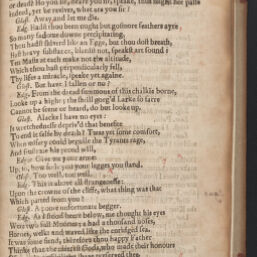 or dead? Ho you sir, heare you sir, speake, thus might he passe
indeed, yet he reviues, what are you sir?
Glost. Away, and let me die.
Edg. Hadst thou been ought but gosmore feathers ayre,
So many fadome downe precipitating,
Thou hadst shiuerd like an Egge, but thou dost breath,
Hast heauy substance, bleedst not, speakst, art sound?
Ten Masts at each make not the altitude,
Which thou hast perpendicularly fell,
Thy lifes a miracle, speake yet againe.
Glost. But haue I fallen or no?
Edg. From the dread summons of this chalkie borne,
Looke up a hight, the shrill gorg'd Larke so farre
Cannot be seene or heard, do but looke up.
Glost. Alacke I haue no eyes:
Is wretchednesse depriv'd that benefit
To end it selfe by death? Twas yet some comfort,
When misery could beguile the Tyrants rage,
And frustrate his proud will.
Edg. Giue me your arme:
Up, so, how is't, you your legges, you stand.
Glost. Too well, too well.
Edg. This is aboue all strangenesse:
Upon the crowne of the cliffe, what thing was that
Which parted from you?
Glost. A poore unfortunate begger.
Edg. As I stood heere below, me thought his eyes
Were two full Moones, a had a thousand noses,
Hornes, welkt and waued like the enridged sea.
It was some fiend, therefore thou happy Father
Thinke that the Gods, who made their honours